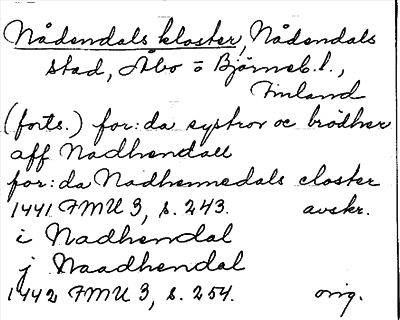 Nådendals kloster, Nådendals
stad, Åbo o Björneb. l.,
Finland
(forts.) for:da systror oc brödher
aff Nadhendall
for:da Nadhennedals closter
1441 FMU 3, s. 243. avskr.
i Nadhendal
j Naadhendal
1442 FMU 3, s. 254. orig.